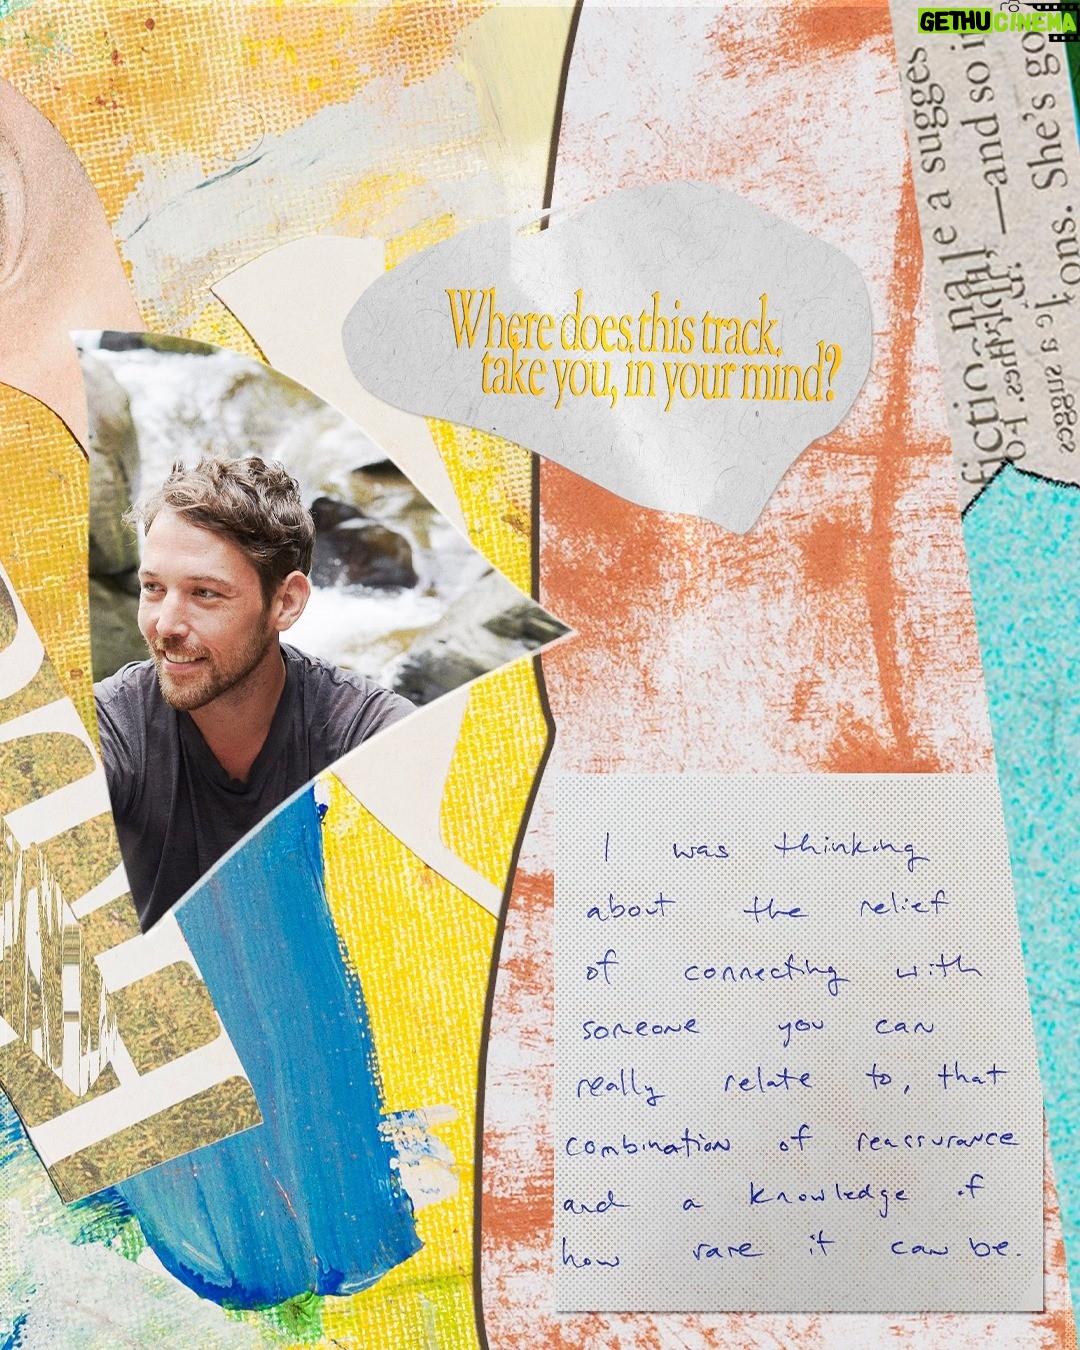 GETHU CINEMA
Where does this track,
take you, in your mind?
e a sugges
—and so i
ons. She's go
fictional
I was thinking
about the relief
of connecting with
someone you can
really relate to, that
combination of reassurance
and a knowledge of
how rare it can be.